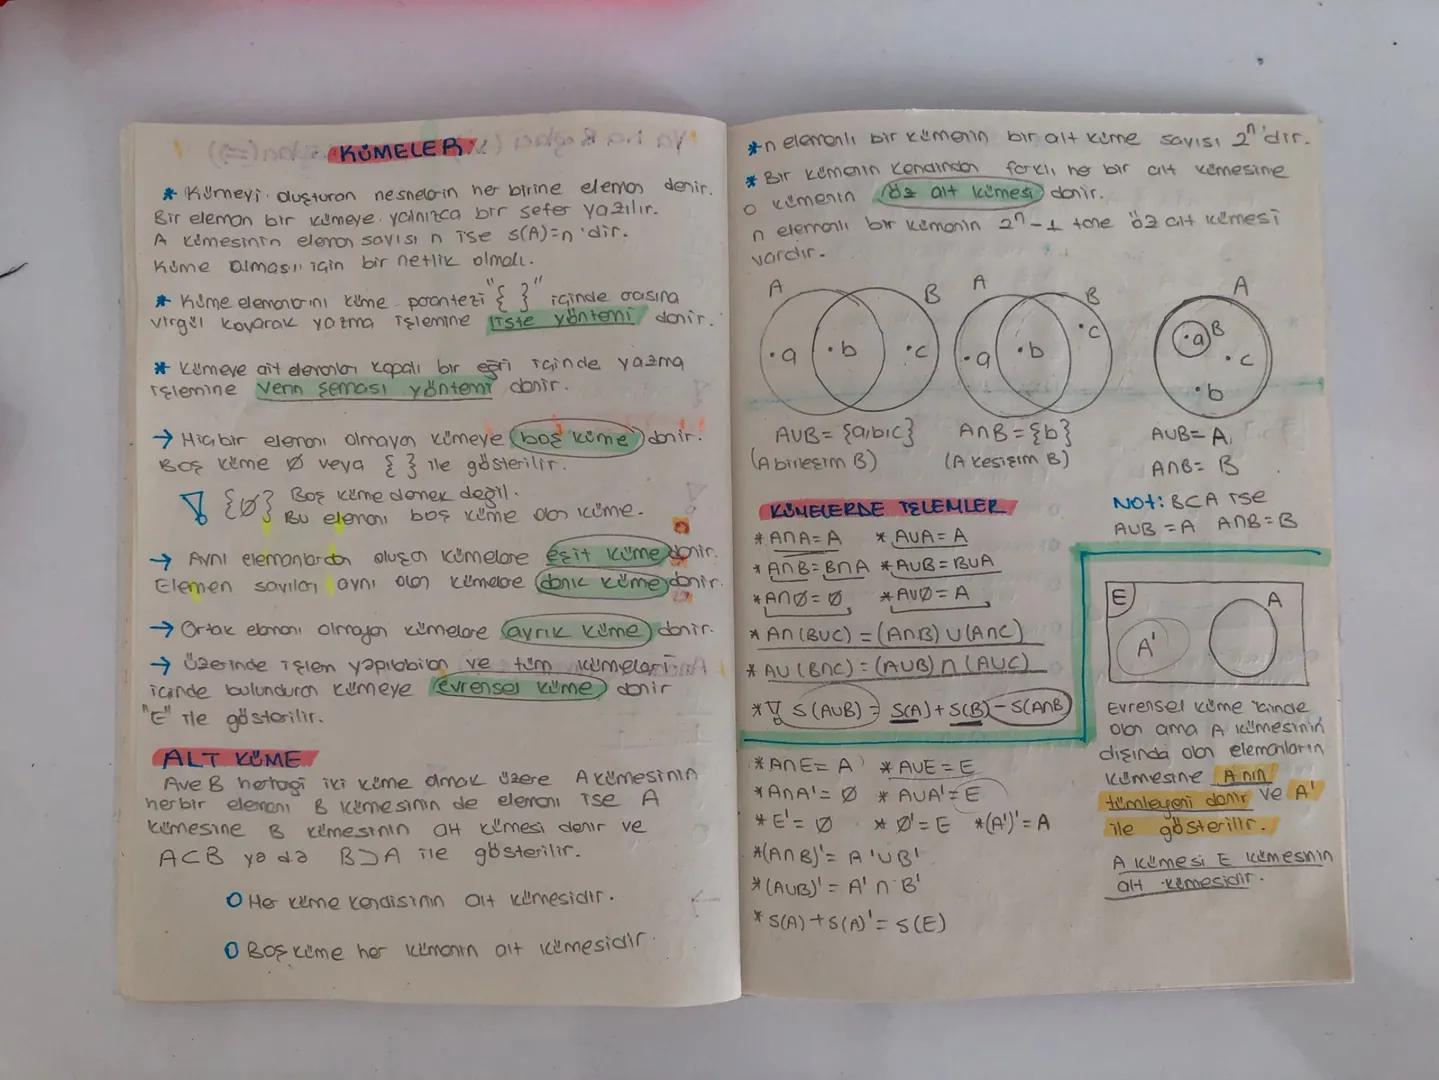 KÜMELER
* Kümeyi oluşturan nesnelerin her birine eleman denir.
Bir eleman bir kümeye yalnızca bir sefer yazılır.
A kümesinin eleman sayısı n ise s(A)=n'dir.
Küme olması için bir netlik olmalı.
* Küme elemanlarını küme parantezi "{ }" içinde arasına
virgül koyarak yazma işlemine liste yöntemi denir.
* Kümeye ait elemanları kapalı bir eğri içinde yazma
işlemine venn şeması yöntemi denir.
→ Hiçbir elemanı olmayan kümeye boş küme denir.
Boş küme Ø veya { } ile gösterilir.
{Ø} Boş küme demek değil.
Bu elemanı boş küme olan küme.
→ Aynı elemanlardan oluşan kümelere eşit küme denir.
Elemen sayıları aynı olan kümelere denk küme denir.
→ Ortak elemanı olmayan kümelere ayrık küme denir.
→ Üzerinde işlem yapılabilen ve tüm kümeleri
içinde bulunduran kümeye evrensel küme denir
"E" ile gösterilir.
ALT KÜME
A ve B herhagi iki küme olmak üzere A kümesinin
her bir elemanı B kümesinin de elemanı ise A
kümesine B kümesinin alt kümesi denir ve
A⊂B ya da B⊃A ile gösterilir.
O Her küme kendisinin alt kümesidir.
O Boş küme her kümenin alt kümesidir.
* n elemanlı bir kümenin bir alt küme sayısı 2ⁿ'dir.
* Bir kümenin kendinden farklı her bir alt kümesine
o kümenin öz alt kümesi denir.
n elemanlı bir kümenin 2ⁿ-1 tane öz alt kümesi
vardır.
A B A B A
.a .b .c .a .b .c .a B .c .b
AUB= {a,b,c} A∩B={b} AUB= A
(A birleşim B) (A kesişim B) A∩B= B
Not: B⊂A ise
AUB = A A∩B = B
KÜMELERDE İŞLEMLER
* A∩A=A * AUA= A
* A∩B=B∩A * AUB=BUA
* A∩Ø=Ø * AUØ= A
* A∩(BUC) = (A∩B) U (A∩C)
* AU(B∩C) = (AUB) ∩ (AUC)
* s(AUB) = s(A) + s(B) - s(A∩B)
* A∩E= A * AUE= E
* A∩A'= Ø * AUA'= E
* E'= Ø * Ø'= E * (A')'= A
* (A∩B)'= A'UB'
* (AUB)'= A'∩B'
* s(A)+s(A)'= s(E)
E A
A'
Evrensel küme içinde
olan ama A kümesinin
dışında olan elemanların
kümesine A nın
tümleyeni denir ve A'
ile gösterilir.
A kümesi E kümesinin
alt kümesidir.